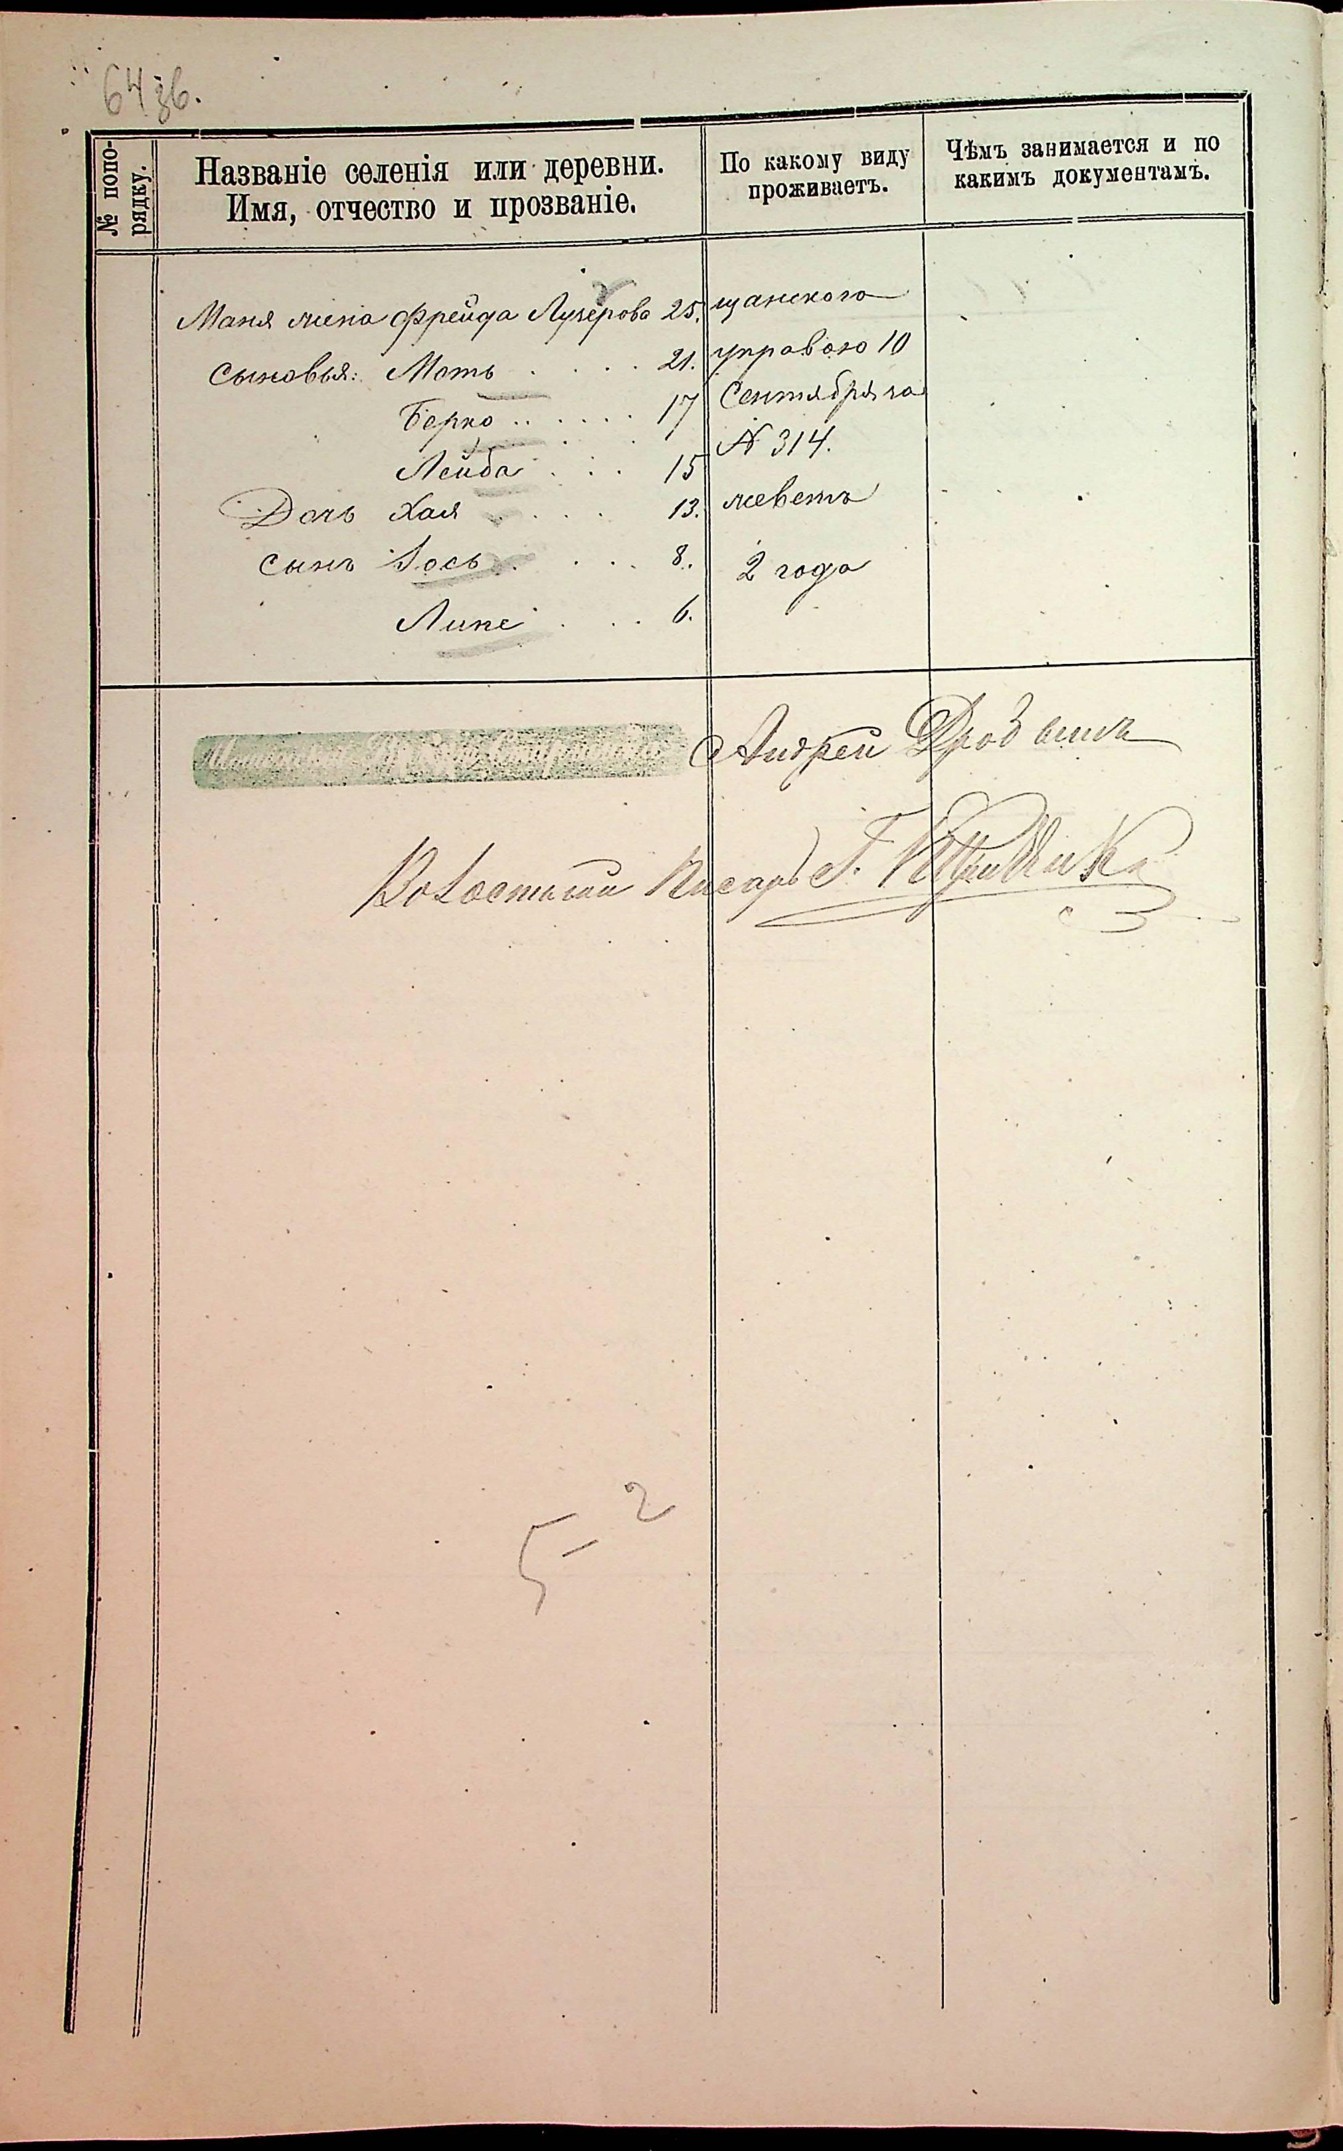 64 зв.
№ попо-
рядку.
Названіе селенія или деревни.
Имя, отчество и прозваніе.
По какому виду
проживаетъ.
Чѣмъ занимается и по
какимъ документамъ.
Маня жена Фрейда Лузерова 25. щанскою
Сыновья: Моть . . . . 21. управою 10
Берко . . . . . . 17 Сентября за
Лейба . . . 15 № 314.
Дочь Хая . . . . 13. живетъ
сынъ Іось . . . . 8. 2 года
Липе . . . 6.
Андрей
Волостной Писарь Г.
5-2